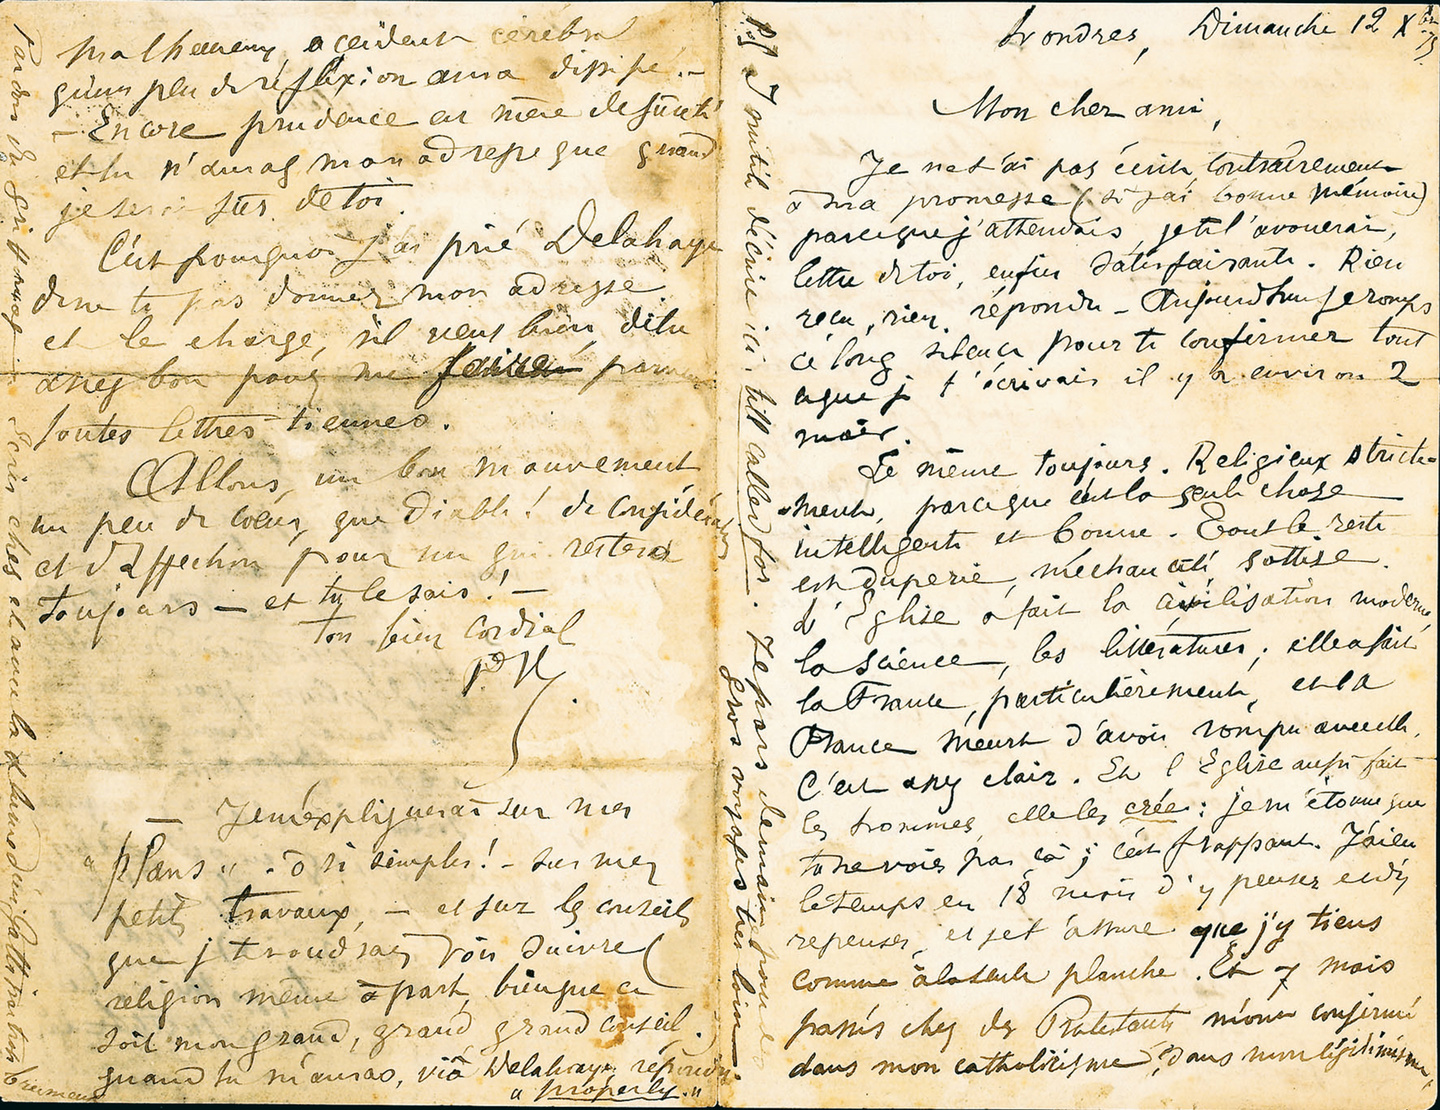 Londres, Dimanche 12 Xbre 75
Mon cher ami,
Je ne t'ai pas écrit, contrairement
à ma promesse (si j'ai bonne mémoire)
parce que j'attendais, je te l'avouerai,
lettre de toi, enfin satisfaisante. Rien
reçu, rien répondu – Aujourd'hui je romps
ce long silence pour te confirmer tout
ce que je t'écrivais il y a environ 2
mois.
Le même toujours. Religieux stricte-
ment, parce que c'est la seule chose
intelligente et bonne. Tout le reste
est duperie, méchanceté sottise.
L'Église a fait la civilisation moderne,
la science, les littératures; elle a fait
la France, particulièrement, et la
France meurt d'avoir rompu avec elle.
C'est assez clair. Et l'Église aussi fait
les hommes, elle les crée: je m'étonne que
tu ne vois pas ça, c'est frappant. J'ai eu
le temps en 18 mois d'y penser et d'y
repenser, et je t'assure que j'y tiens
comme à la seule planche. Et 7 mois
passés chez des Protestants m'ont confirmé
dans mon catholicisme, dans mon légitimisme,
malheureux, accident cérébral
qu'un peu de réflexion aura dissipé. –
– Encore prudence est mère de sûreté
et tu n'auras mon adresse que quand
je serai sûr de toi.
C'est pourquoi j'ai prié Delahaye
de ne te pas donner mon adresse
et le charge, s'il veut bien, d'être
assez bon pour me faire parvenir
toutes lettres tiennes.
Allons, un bon mouvement
un peu de cœur, que Diable! de considération
et d'affection pour un qui restera
toujours – et tu le sais! –
Ton bien cordial
P.V.
– Je m'expliquerai sur mes
"plans" – ô si simples! – sur mes
petits travaux, – et sur les conseils
que je te voudrais voir suivre (
religion même à part, bien que ce
soit mon grand, grand, grand conseil.
quand tu m'auras, viâ Delahaye, répondu
"properly."
P.S. Inutile d'écrire ici till called for. Je pars demain pour de
gros voyages très loin